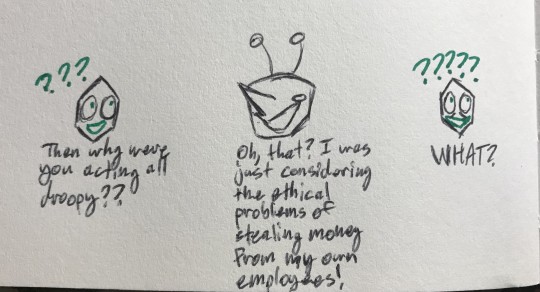 ???
Then why were
you acting all
droopy??
Oh, that? I was
just considering
the ethical
problems of
stealing money
from my own
employees!
?????
WHAT?